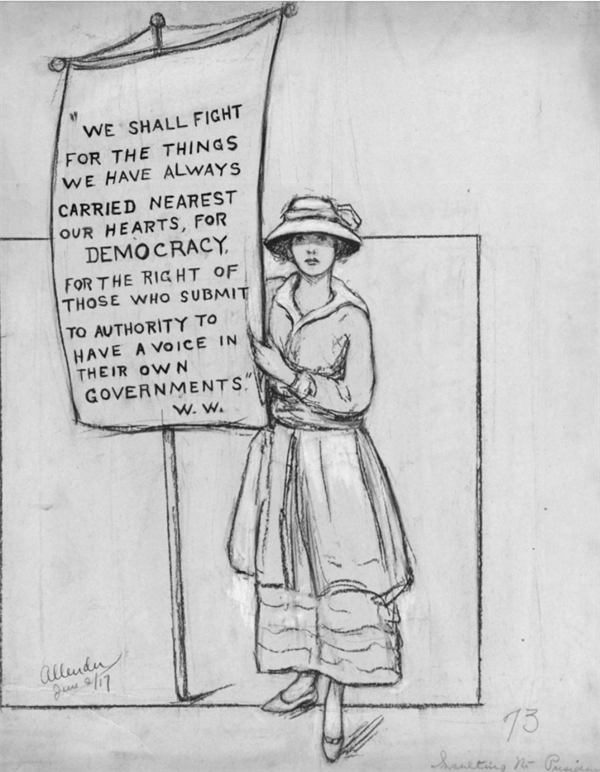 "WE SHALL FIGHT
FOR THE THINGS
WE HAVE ALWAYS
CARRIED NEAREST
OUR HEARTS, FOR
DEMOCRACY,
FOR THE RIGHT OF
THOSE WHO SUBMIT
TO AUTHORITY TO
HAVE A VOICE IN
THEIR OWN
GOVERNMENTS."
W. W.
Allender
June /17
73
Insulting the Presiden